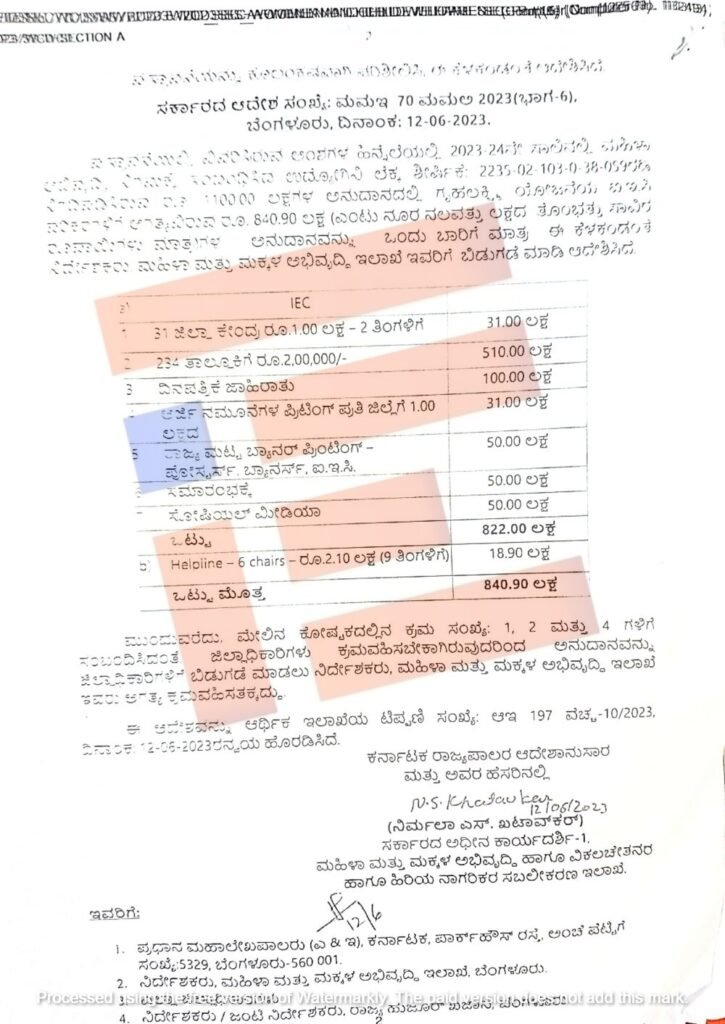 ಸರ್ಕಾರದ ಆದೇಶ ಸಂಖ್ಯೆ: ಮಮಇ 70 ಮಮಅ 2023(ಭಾಗ-6),
ಬೆಂಗಳೂರು, ದಿನಾಂಕ: 12-06-2023.
2023-24ನೇ ಸಾಲಿನಲ್ಲಿ ಮಹಿಳಾ
ಲೆಕ್ಕ ಶೀರ್ಷಿಕೆ: 2235-02-103-0-38-059
ಲಕ್ಷಗಳ ಅನುದಾನದಲ್ಲಿ ಗೃಹಲಕ್ಷ್ಮಿ ಯೋಜನೆಯ ಐ.ಇ.ಸಿ
ರೂ. 840.90 ಲಕ್ಷ (ಎಂಟು ನೂರ ನಲವತ್ತು ಲಕ್ಷದ ತೊಂಭತ್ತು ಸಾವಿರ
ರೂಪಾಯಿಗಳು ಮಾತ್ರ)ಗಳ ಅನುದಾನವನ್ನು ಒಂದು ಬಾರಿಗೆ ಮಾತ್ರ ಈ ಕೆಳಕಂಡಂತೆ
ನಿರ್ದೇಶಕರು, ಮಹಿಳಾ ಮತ್ತು ಮಕ್ಕಳ ಅಭಿವೃದ್ಧಿ ಇಲಾಖೆ ಇವರಿಗೆ ಬಿಡುಗಡೆ ಮಾಡಿ ಆದೇಶಿಸಿದೆ.
IEC
1 31 ಜಿಲ್ಲಾ ಕೇಂದ್ರ ರೂ.1.00 ಲಕ್ಷ – 2 ತಿಂಗಳಿಗೆ 31.00 ಲಕ್ಷ
2 234 ತಾಲ್ಲೂಕಿಗೆ ರೂ.2,00,000/- 510.00 ಲಕ್ಷ
3 ದಿನಪತ್ರಿಕೆ ಜಾಹಿರಾತು 100.00 ಲಕ್ಷ
ಅರ್ಜಿ ನಮೂನೆಗಳ ಪ್ರಿಟಿಂಗ್ ಪ್ರತಿ ಜಿಲ್ಲೆಗೆ 1.00 31.00 ಲಕ್ಷ
ಲಕ್ಷದ
5 ರಾಜ್ಯ ಮಟ್ಟ ಬ್ಯಾನರ್ ಪ್ರಿಂಟಿಂಗ್ – 50.00 ಲಕ್ಷ
ಪೋಸ್ಟರ್ಸ್, ಬ್ಯಾನರ್ಸ್, ಐ.ಇ.ಸಿ.
ಸಮಾರಂಭಕ್ಕೆ 50.00 ಲಕ್ಷ
ಸೋಷಿಯಲ್ ಮೀಡಿಯಾ 50.00 ಲಕ್ಷ
ಒಟ್ಟು 822.00 ಲಕ್ಷ
b) Helpline – 6 chairs – ರೂ.2.10 ಲಕ್ಷ (9 ತಿಂಗಳಿಗೆ) 18.90 ಲಕ್ಷ
ಒಟ್ಟು ಮೊತ್ತ 840.90 ಲಕ್ಷ
ಮುಂದುವರೆದು, ಮೇಲಿನ ಕೋಷ್ಟಕದಲ್ಲಿನ ಕ್ರಮ ಸಂಖ್ಯೆ: 1, 2 ಮತ್ತು 4 ಗಳಿಗೆ
ಸಂಬಂದಿಸಿದಂತೆ, ಜಿಲ್ಲಾಧಿಕಾರಿಗಳು ಕ್ರಮವಹಿಸಬೇಕಾಗಿರುವುದರಿಂದ ಅನುದಾನವನ್ನು
ಜಿಲ್ಲಾಧಿಕಾರಿಗಳಿಗೆ ಬಿಡುಗಡೆ ಮಾಡಲು ನಿರ್ದೇಶಕರು, ಮಹಿಳಾ ಮತ್ತು ಮಕ್ಕಳ ಅಭಿವೃದ್ಧಿ ಇಲಾಖೆ
ಇವರು ಅಗತ್ಯ ಕ್ರಮವಹಿಸತಕ್ಕದ್ದು.
ಈ ಆದೇಶವನ್ನು ಆರ್ಥಿಕ ಇಲಾಖೆಯ ಟಿಪ್ಪಣಿ ಸಂಖ್ಯೆ: ಆಇ 197 ವೆಚ್ಚ-10/2023,
ದಿನಾಂಕ: 12-06-2023ರನ್ವಯ ಹೊರಡಿಸಿದೆ.
ಕರ್ನಾಟಕ ರಾಜ್ಯಪಾಲರ ಆದೇಶಾನುಸಾರ
ಮತ್ತು ಅವರ ಹೆಸರಿನಲ್ಲಿ
12/06/2023
(ನಿರ್ಮಲಾ ಎಸ್. ಖಟಾವ್‌ಕರ್)
ಸರ್ಕಾರದ ಅಧೀನ ಕಾರ್ಯದರ್ಶಿ-1,
ಮಹಿಳಾ ಮತ್ತು ಮಕ್ಕಳ ಅಭಿವೃದ್ಧಿ ಹಾಗೂ ವಿಕಲಚೇತನರ
ಹಾಗೂ ಹಿರಿಯ ನಾಗರಿಕರ ಸಬಲೀಕರಣ ಇಲಾಖೆ.
12/6
ಇವರಿಗೆ:
1. ಪ್ರಧಾನ ಮಹಾಲೇಖಪಾಲರು (ಎ & ಇ), ಕರ್ನಾಟಕ, ಪಾರ್ಕ್‌ಹೌಸ್ ರಸ್ತೆ, ಅಂಚೆ ಪೆಟ್ಟಿಗೆ
ಸಂಖ್ಯೆ:5329, ಬೆಂಗಳೂರು-560 001.
2. ನಿರ್ದೇಶಕರು, ಮಹಿಳಾ ಮತ್ತು ಮಕ್ಕಳ ಅಭಿವೃದ್ಧಿ ಇಲಾಖೆ, ಬೆಂಗಳೂರು.
Processed using the free version of Watermarkly. The paid version does not add this mark.
4. ನಿರ್ದೇಶಕರು / ಜಂಟಿ ನಿರ್ದೇಶಕರು, ರಾಜ್ಯ ಹುಜೂರ್ ಖಜಾನೆ, ಬೆಂಗಳೂರು